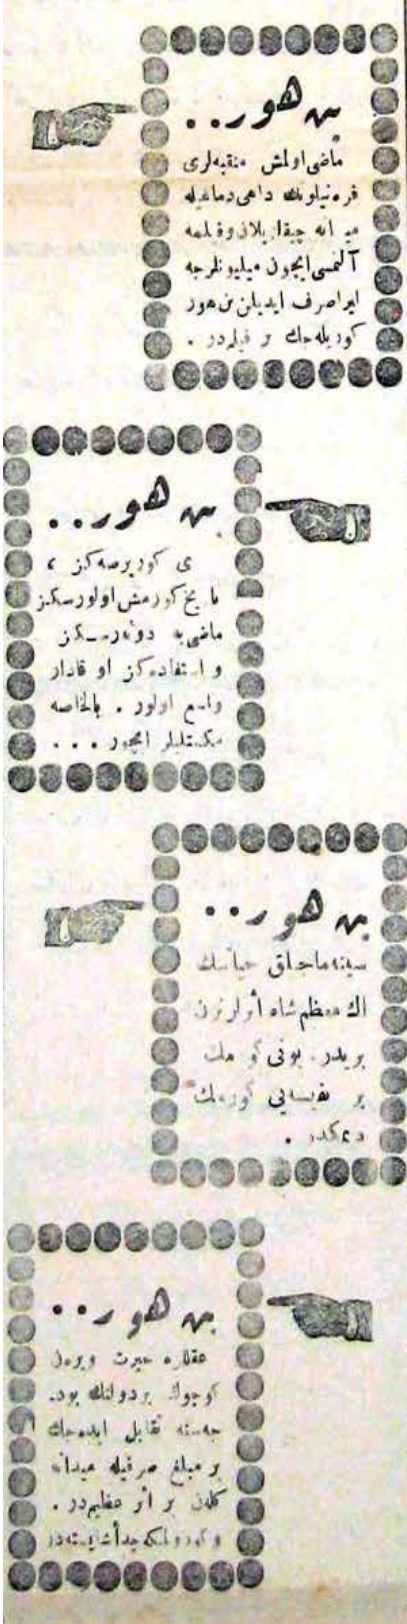 بن هور..
ماضی اولمش منقبه‌لری
فره نیلونك داهی دماغیله
آلنمسی ایچون میلیونلرجه
صرف ایدیلن بن هور
كوریله‌جك بر فیلمدر .
بن هور..
ی كوررسه‌كز ،
تاریخ كورمش اولورسكز
ماضی‌یه دونه‌رسكز
و استفاده‌كز او قادار
واسع اولور . بالخاصه
مكتبلیلر ایچون ...
بن هور..
سینه‌ماجیلق حیاتنك
اك معظم شاه أثرلرندن
بریدر . بونی كورمك
بر نفیسه‌یی كورمك
دیمكدر .
بن هور..
عقللره حیرت ویره‌ن
كوچوك بر دولتك بود-
جه‌سنه تقابل ایده‌جك
بر مبلغ صرفیله میدانه
كلن بر اثر عظیمدر .
و كورولمكه جدأ شایسته‌در